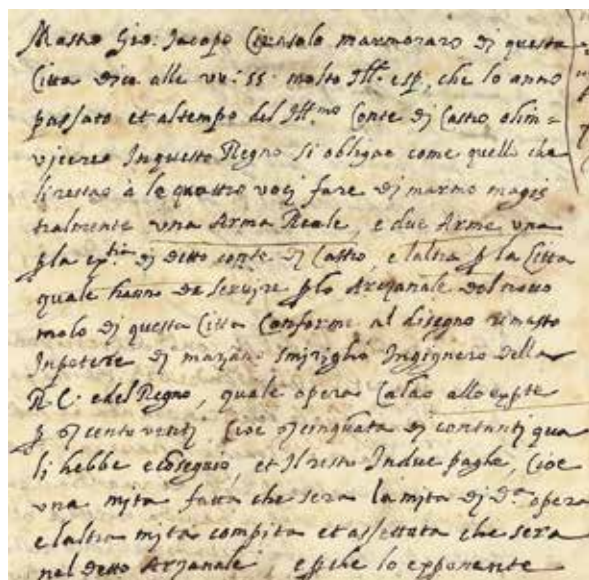 Mastro Gio: Jacopo Cirasolo marmoraro di questa
Citta dice alle vv: ss: molto Ill. e sp, che lo anno
passato et al tempo del Ill.mo Conte di Castro olim=
vicere Inquesto Regno si obligao come quello che
li restao à le quattro voci fare di marmo magis
tralmente una Arma Reale, e due Arme una
p la ex.tia di detto conte di Castro, e laltra p la Citta
quale hanno da servire p lo Arzanale del novo
molo di questa Citta Conforme al disegno rimasto
Inpotere di mariano smiriglio Ingignero della
R. C. e del Regno, quale opera Calao allo expte
p cento venti Cioe cinquãta di contanti qua
li hebbe e cõseguio, et Il resto Indue paghe, Cioe
una mita fatta che sera la mita di d.a opera
e laltra mita compita et assettata che sera
nel detto Arzanale, e pche lo exponente